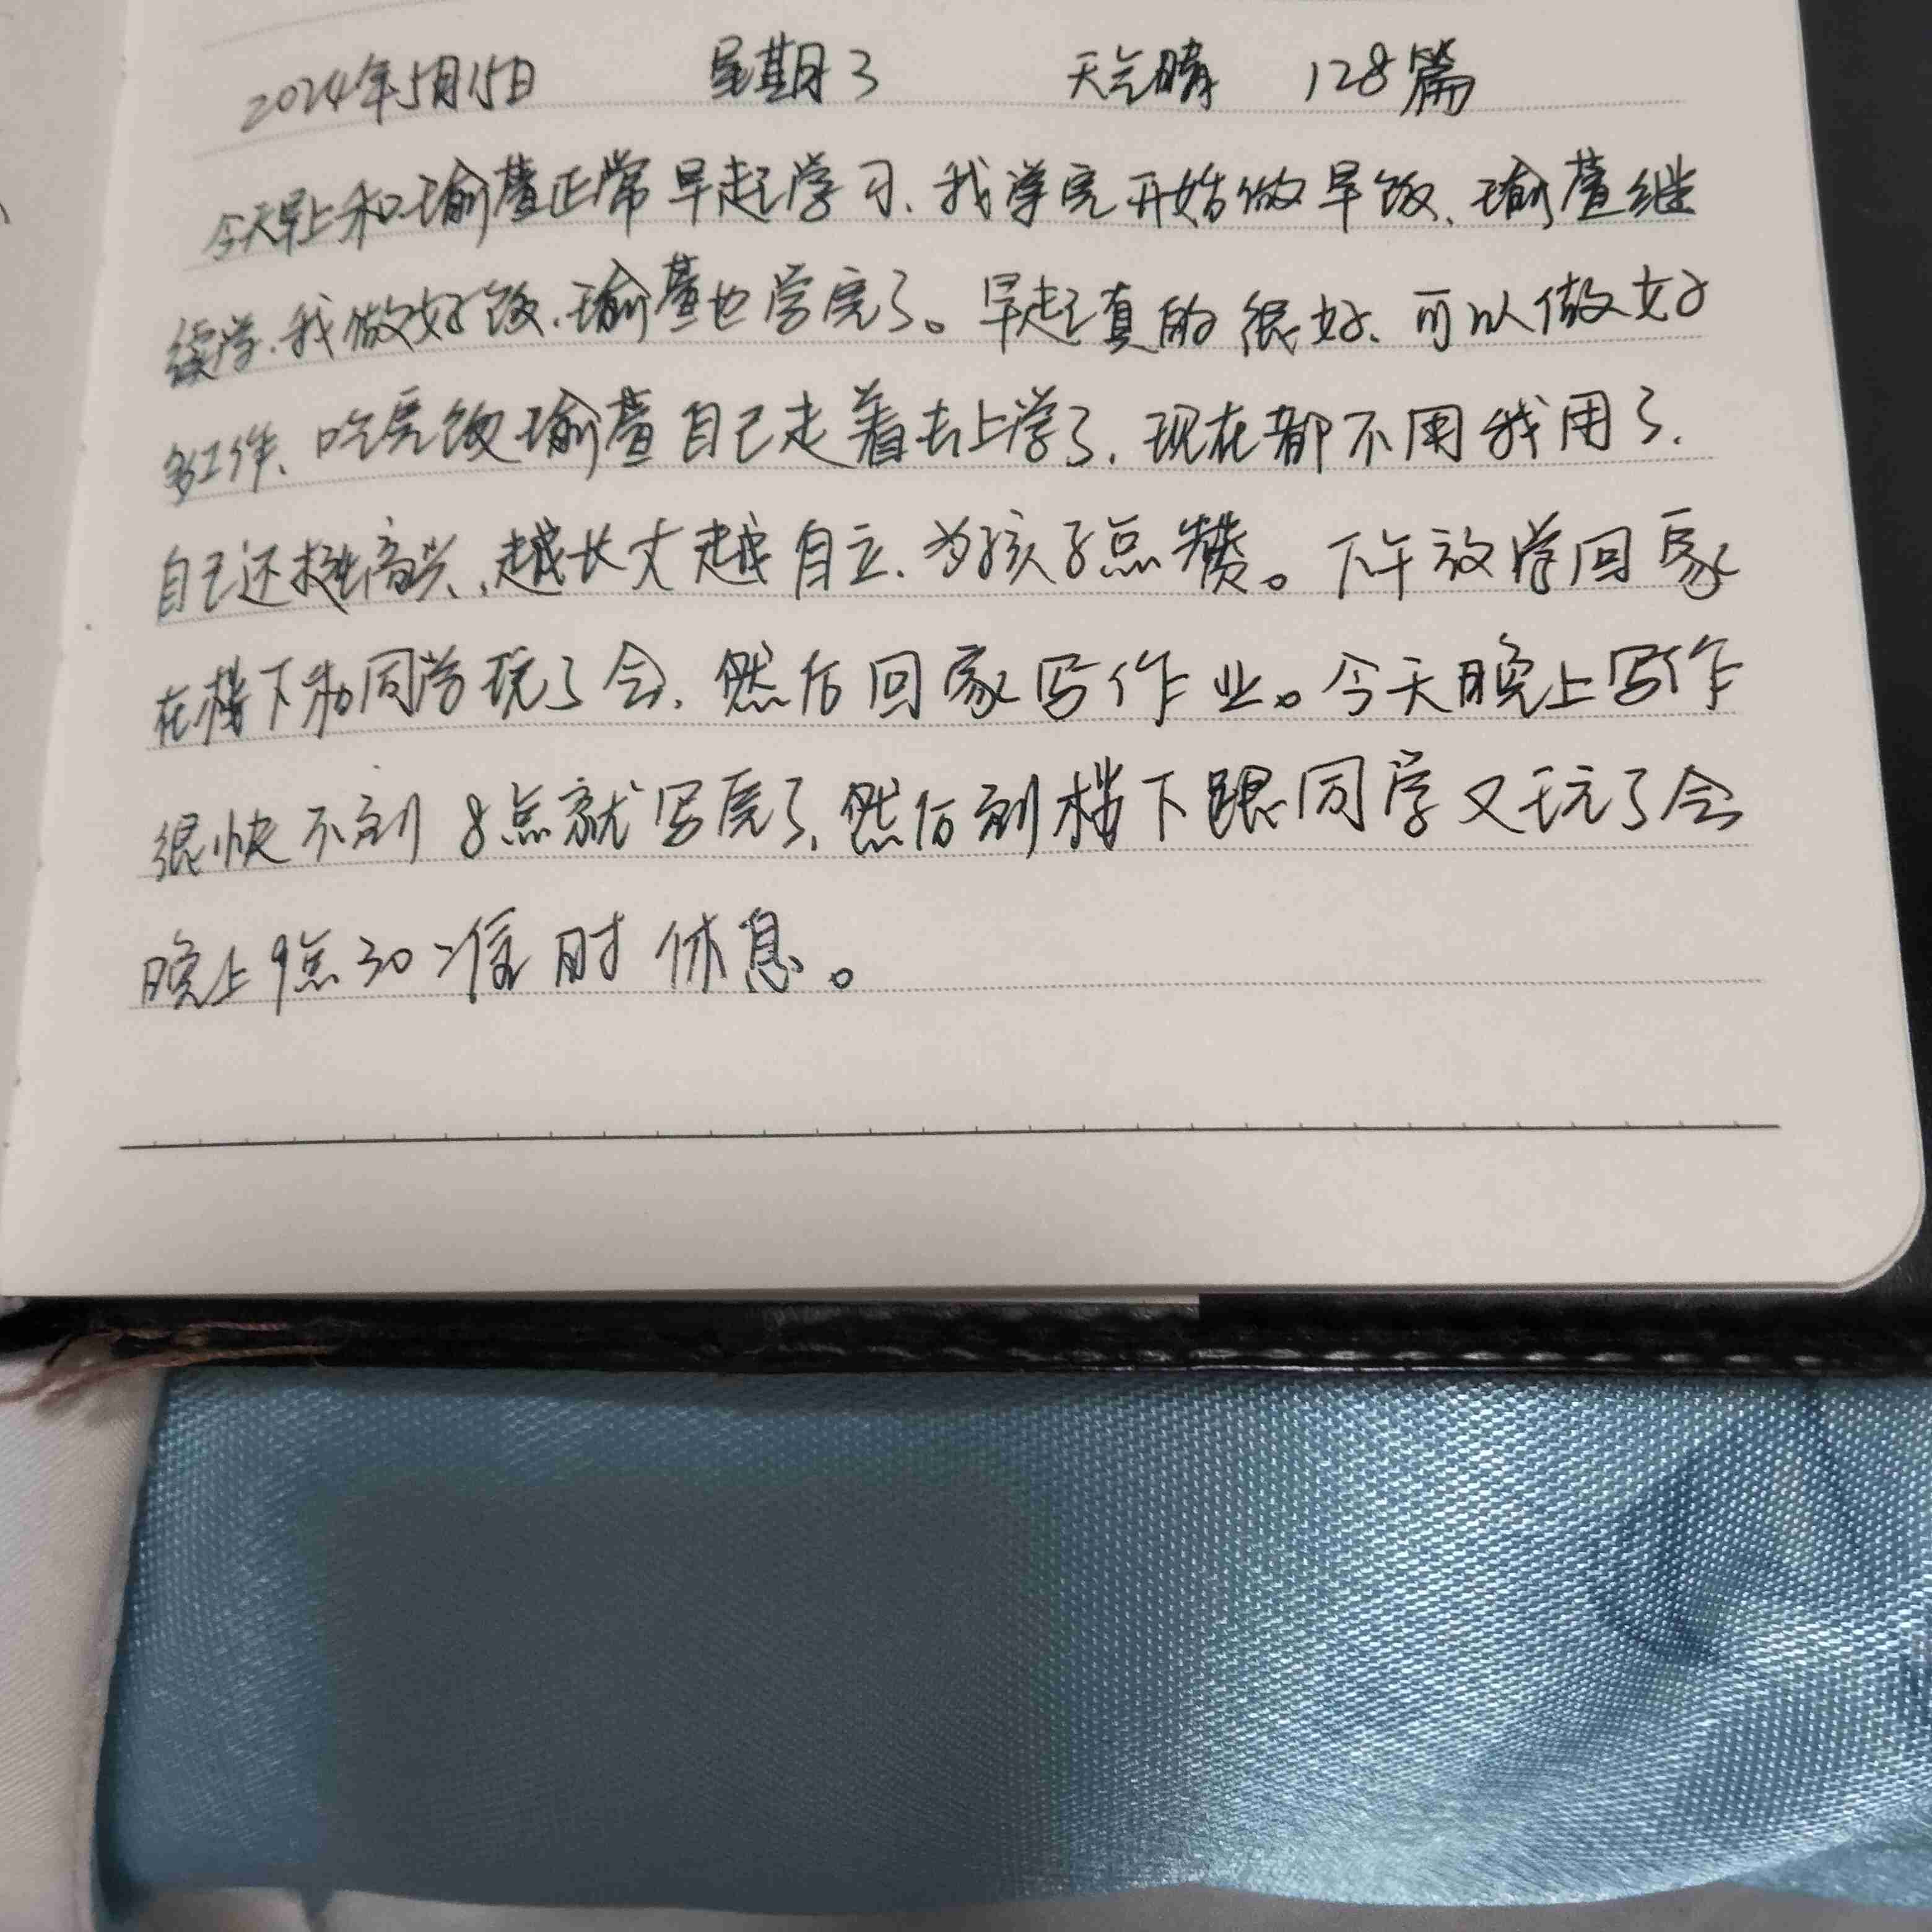 2024年5月15日 星期3 天气晴 128篇
今天早上和瑜萱正常早起学习、我学完开始做早饭、瑜萱继
续学、我做好饭、瑜萱也学完了。早起真的很好、可以做好
多工作、吃完饭瑜萱自己走着去上学了、现在都不用我用了、
自己还挺高兴、越长大越自立、为孩子点赞。下午放学回家
在楼下和同学玩了会、然后回家写作业。今天晚上写作
很快不到8点就写完了、然后到楼下跟同学又玩了会
晚上9点30准时休息。